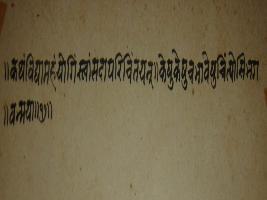 ॥कथंविद्यामहंयोगिंस्त्वांसदापरिचिंतयन्॥केषुकेषुचभावेषुचिंत्योसिभग
वन्मया॥१७॥